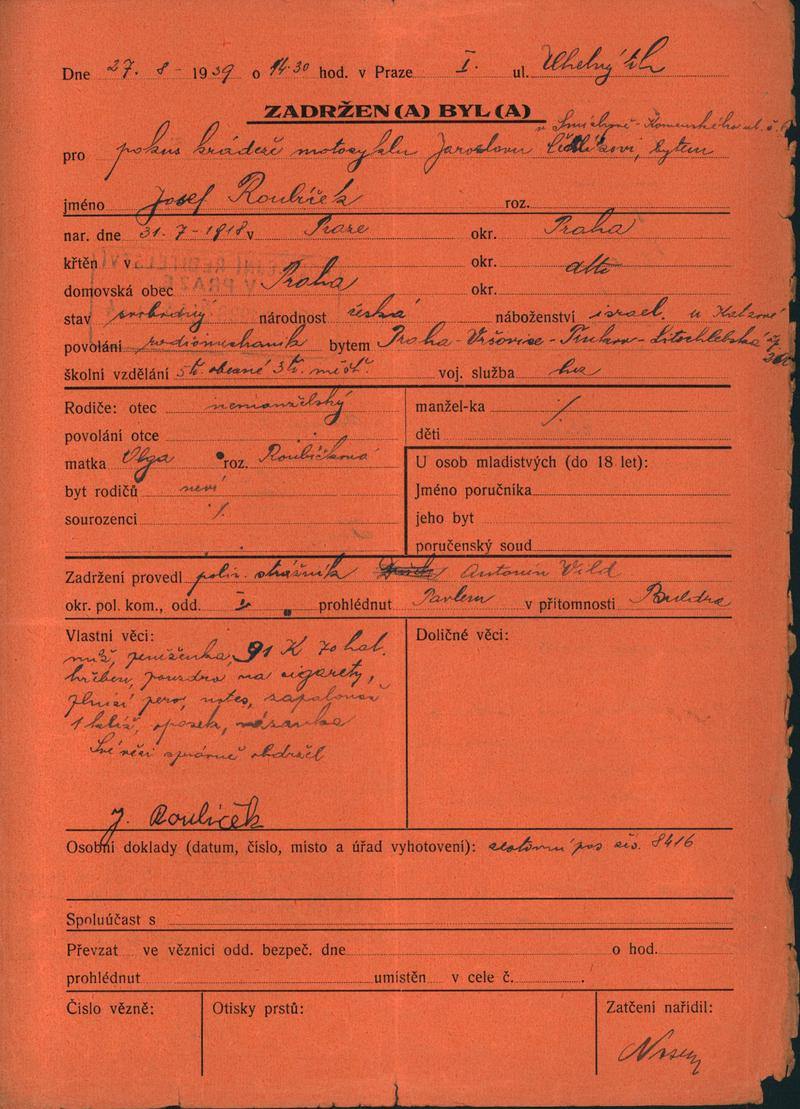 Dne 27. 8 - 1939 o 14·30 hod. v Praze I. ul. Uhelný trh
ZADRŽEN(A) BYL(A)
v Smíchově - Komenského ul. č.
pro pokus krádeže motocyklu Jaroslavu bytem
jméno Josef Roubíček roz.
nar. dne 31. 7 - 1918 v Praze okr. Praha
křtěn v okr. dtto
domovská obec Praha okr.
stav svobodný národnost česká náboženství israel. u
povolání radiomechanik bytem Praha - Vršovice - Litochlebská
školní vzdělání 5 tř. obecné 3 tř. měšť. voj. služba bez
Rodiče: otec nemanželský manžel-ka /.
povolání otce děti
matka Olga roz. Roubíčková U osob mladistvých (do 18 let):
byt rodičů neví Jméno poručníka
sourozenci /. jeho byt
poručenský soud
Zadržení provedl polic. strážník Antonín Vild
okr. pol. kom., odd. I „ prohlédnut Pavlem v přítomnosti
Vlastní věci: Doličné věci:
nůž, peněženka, 91 K 70 hal.
hřeben, pouzdro na cigarety,
plnicí pero, notes, zapalovač
1 klíč, opasek, vázanka
Své věci správně obdržel
J. Roubíček
Osobní doklady (datum, číslo, místo a úřad vyhotovení): cestovní pas čís. 8416
Spoluúčast s
Převzat ve věznici odd. bezpeč. dne o hod.
prohlédnut umístěn v cele č.
Číslo vězně: Otisky prstů: Zatčení nařídil: